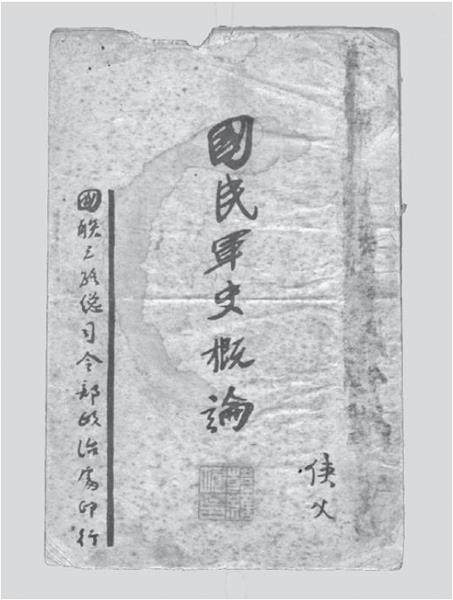 俠父
國民軍史概論
國联三路總司令部政治處印行